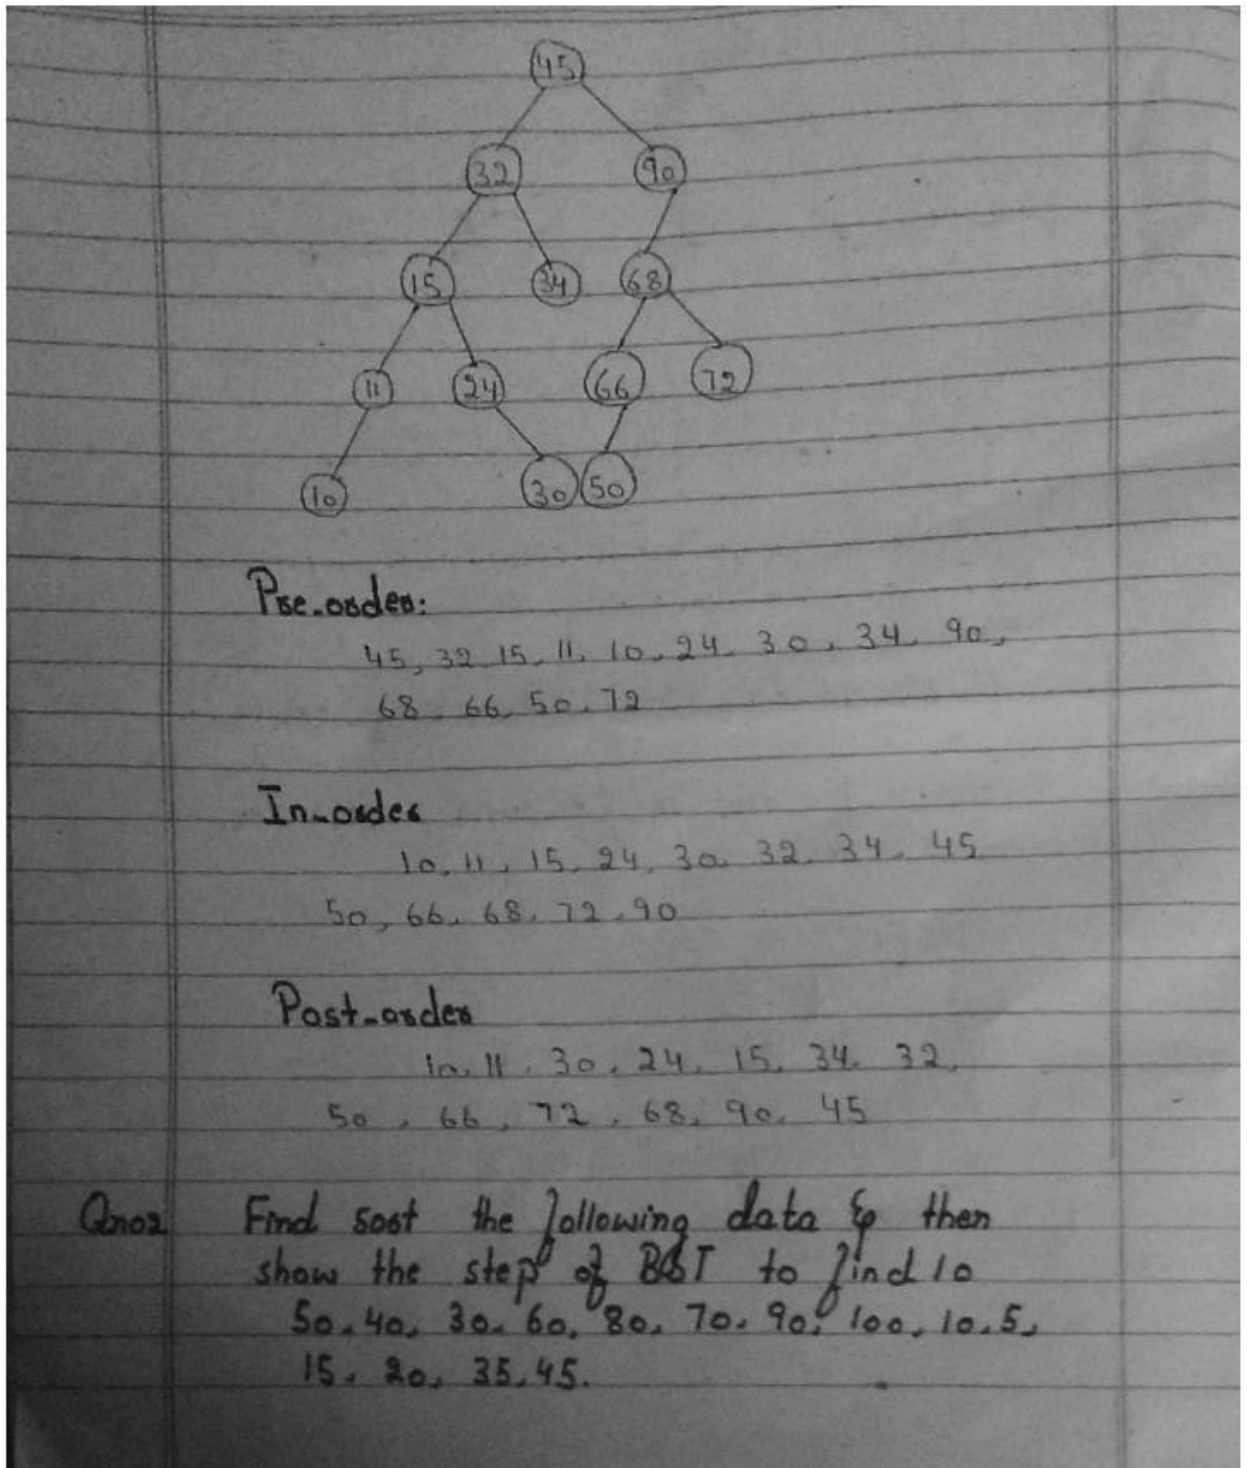 45
32 90
15 34 68
11 24 66 72
10 30 50
Pre-order:
45, 32 15, 11, 10, 24, 30, 34, 90,
68, 66, 50, 72
In-order
10, 11, 15, 24, 30, 32, 34, 45
50, 66, 68, 72, 90
Post-order
10, 11, 30, 24, 15, 34, 32,
50, 66, 72, 68, 90, 45
Qno2 Find sort the following data & then
show the step of BST to find 10
50, 40, 30, 60, 80, 70, 90, 100, 10, 5,
15, 20, 35, 45.